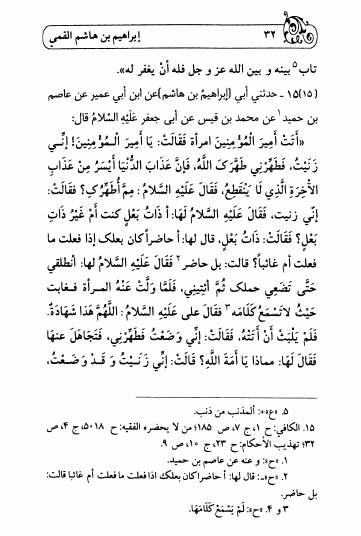 ٣٢ إبراهيم بن هاشم القمي
تاب٥ بينه و بين الله عز و جل فله أنْ يغفر له».
(١٥)١٥ ـ حدثني أبي (إبراهيمُ بن هاشم)عن ابن أبي عمير عن عاصم
بن حميد١ عن محمد بن قيس عن أبى جعفر عَلَيْهِ السّلامُ قال:
«أَتَتْ أَمِيرَ الْمُؤْمِنينَ امرأة فَقَالَتْ: يَا أَمِيرَ الْـمُؤْمِنِينَ! إنِّـي
زَنَيْتُ، فَطَهِّرْنِي طَهَّرَكَ اللّهُ، فَإِنَّ عَذَابَ الدُّنْيَا أَيْسَرُ مِنْ عَذَابِ
الآخِرَةِ الَّذِي لَا يَنْقَطِعُ، فَقَالَ عَلَيْهِ السَّلَامُ: مِمَّ أُطَهِّرُكِ؟ فَقَالَتْ:
إنِّي زنيت، فَقَالَ عَلَيْهِ السَّلَامُ لَهَا: أَ ذَاتُ بَعْلٍ كنت أَمْ غَيْرُ ذَاتِ
بَعْلٍ؟ فَقَالَتْ: ذَاتُ بَعْلٍ، قال لها: أ حاضراً كان بعلك إذا فعلت ما
فعلت أم غائباً؟ قالت: بل حاضر٢ فَقَالَ عَلَيْهِ السَّلامُ لها: أنطلقي
حَتَّى تَضَعِي حملک ثُمَّ أئتِيني، فَلَمَّا وَلَّتْ عَنْهُ المـرأة فـغابت
حَيْثُ لاتَسْمَعُ كَلَامَه٣ فقالَ على عَلَيْهِ السّلام: اللَّهُمَّ هَذا شَهَادَةٌ.
فَلَمْ يَلْبَثْ أَنْ أَتَتْهُ، فَقَالَتْ: إنِّي وَضَعْتُ فَطَهِّرْنِي، فَتَجَاهَلَ عنها
فَقَالَ لَهَا: مماذا يَا أَمَةَ اللَّهِ؟ قَالَتْ: إِنِّي زَنَـيْتُ وَ قَـدْ وَضَـعْتُ،
٥. «ع»+: المذنب من ذنب.
١٥. الكافي: ح ١، ج ٧، ص ١٨٥؛ من لا يحضره الفقيه: ح ٥٠١٨، ج ۴، ص
٣٢؛ تهذيب الأحكام: ح ٢٣، ج ١٠، ص ٩.
١. «ح»: و عنه عن عاصم بن حميد.
٢. «ح»ـ: قال لها: أ حاضرا كان بعلك اذا فعلت ما فعلت أم غائبا قالت:
بل حاضر.
٣ و ۴. «ح»: لَمْ يَسْمَعْ كَلَامَهَا.